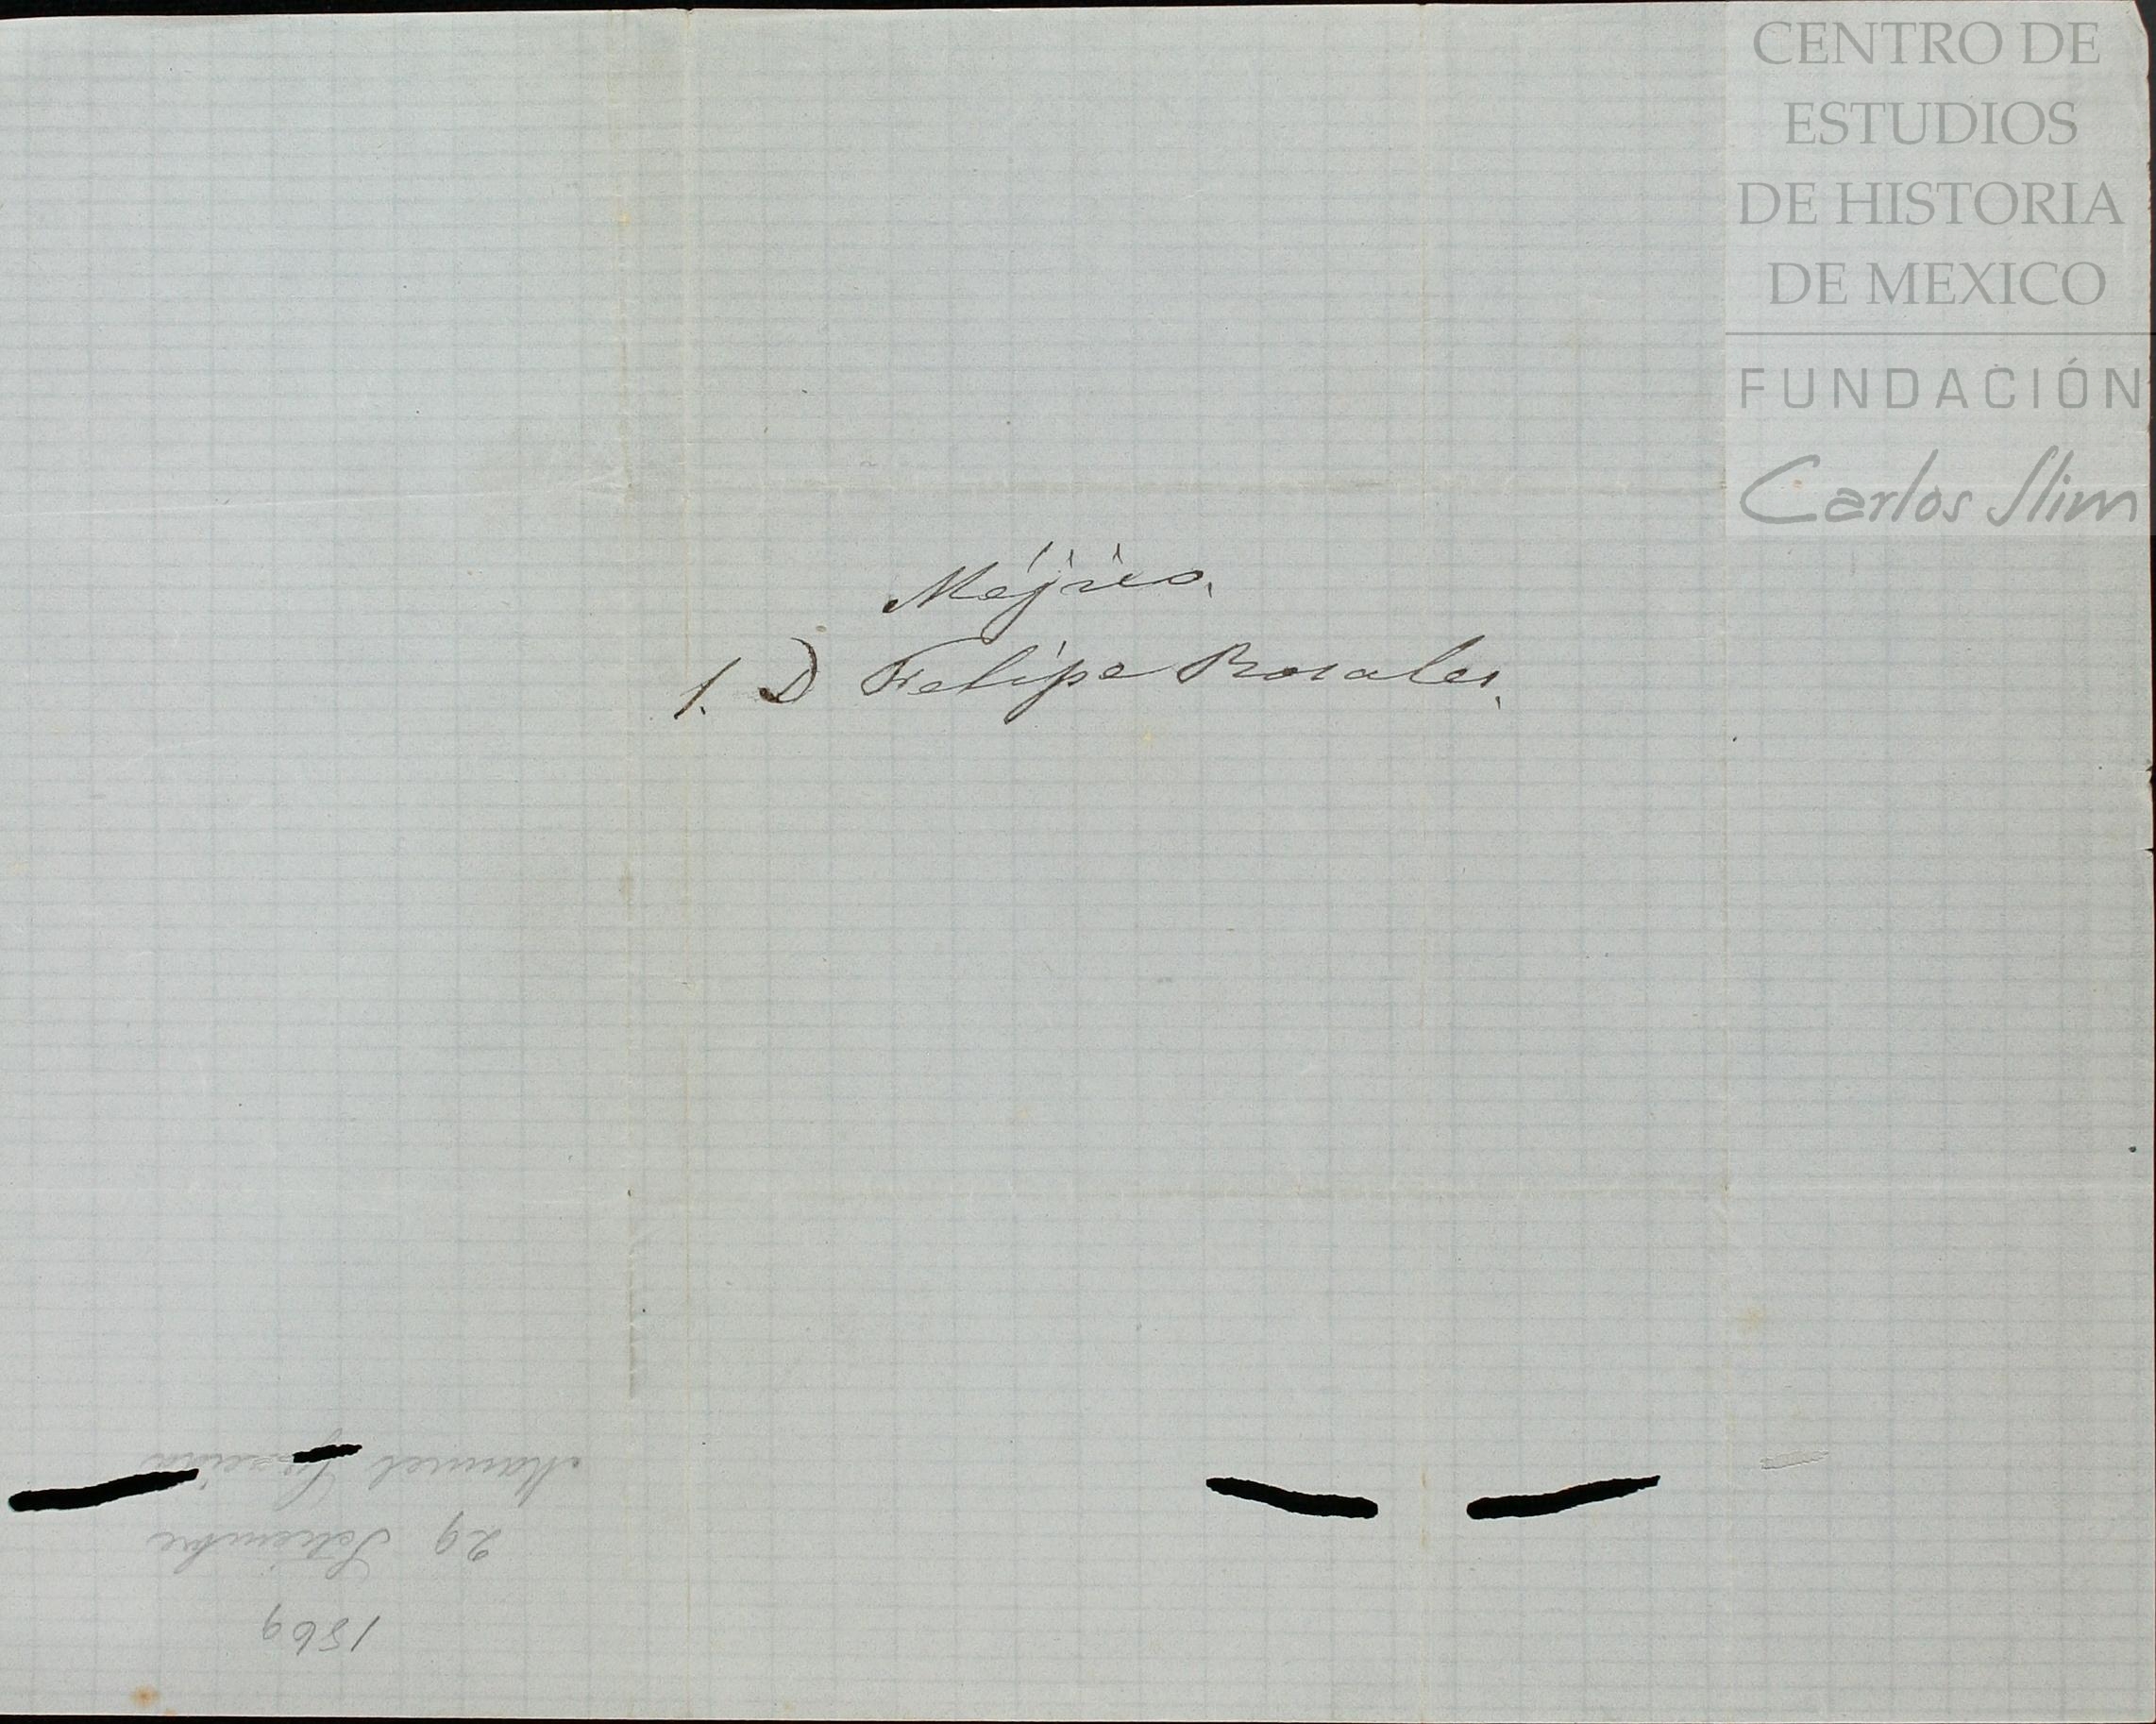 CENTRO DE
ESTUDIOS
DE HISTORIA
DE MEXICO
FUNDACIÓN
Carlos Slim
Méjico.
S. D Felipe Rosales.
Manuel
29 Setiembre
1869